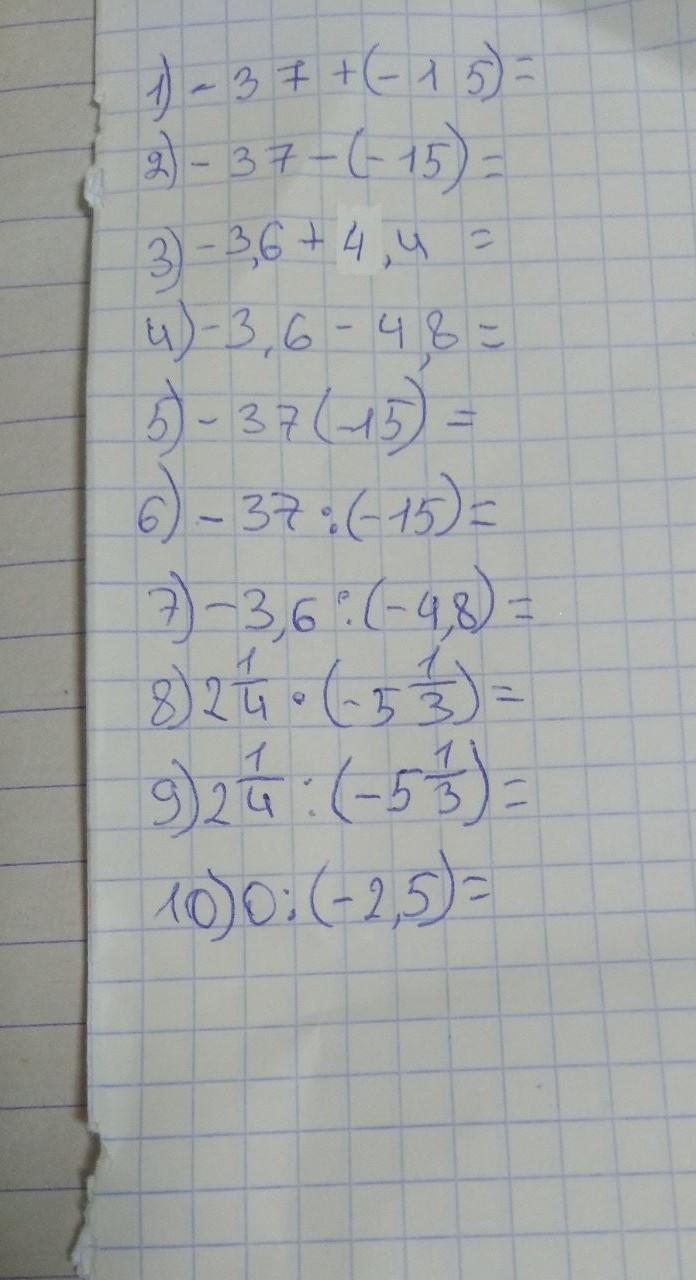 1) - 37 + (-15) =
2) - 37 - (-15) =
3) - 3,6 + 4,4 =
4) - 3,6 - 4,8 =
5) - 37 (-15) =
6) - 37 : (-15) =
7) - 3,6 : (-4,8) =
8) 2 1/4 · (-5 1/3) =
9) 2 1/4 : (-5 1/3) =
10) 0 : (-2,5) =